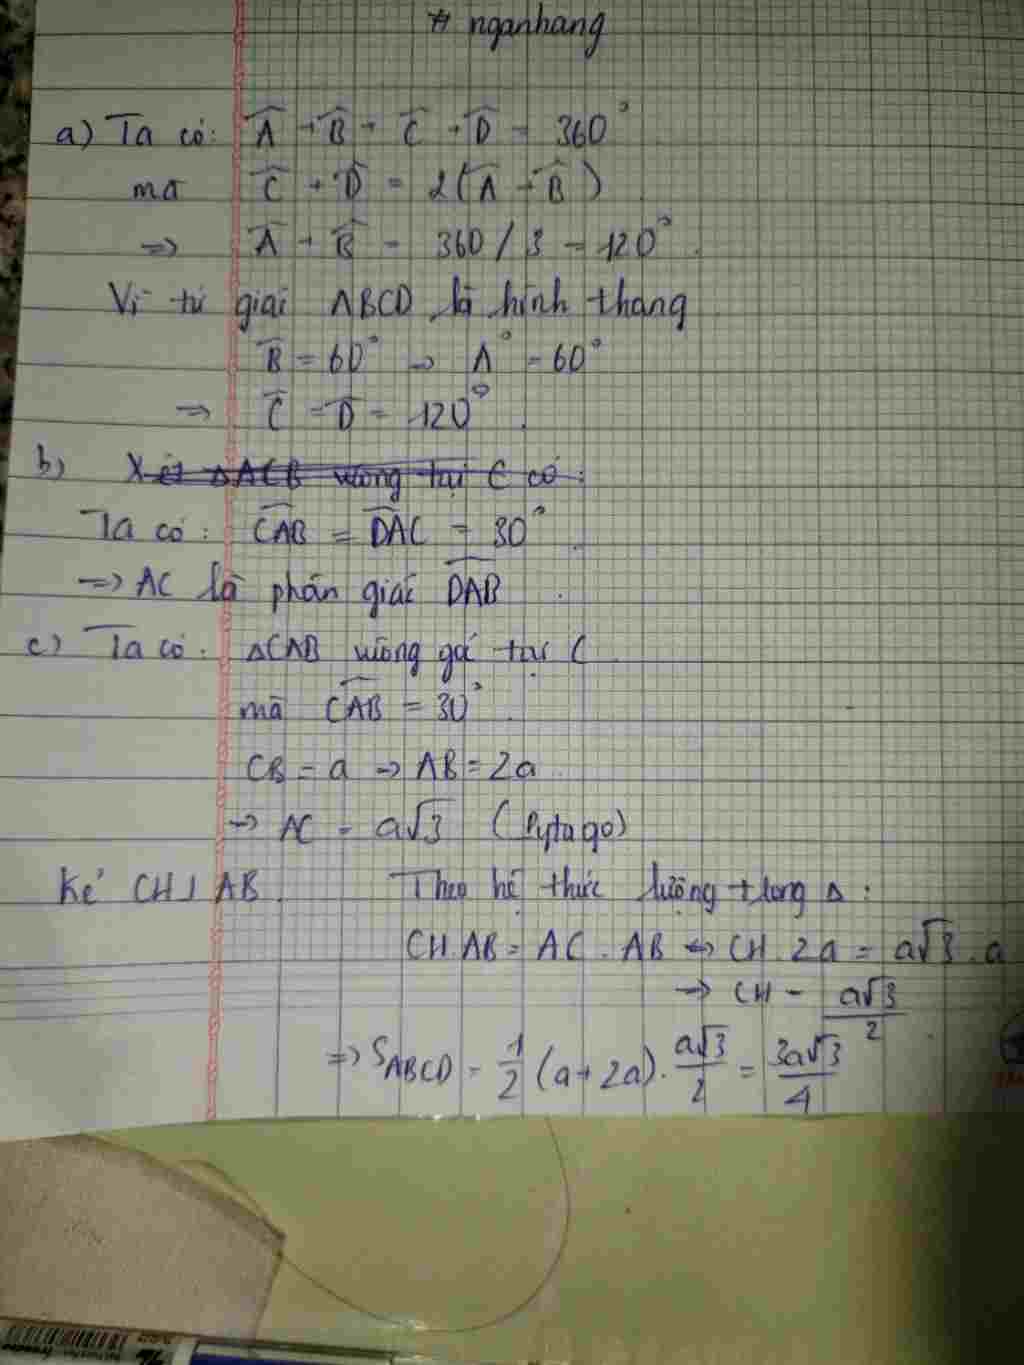 # nganhang
a) Ta có: Â + B̂ + Ĉ + D̂ = 360°
mà Ĉ + D̂ = 2(Â + B̂)
=> Â + B̂ = 360 / 3 = 120°.
Vì tứ giác ABCD là hình thang
B̂ = 60° → A° = 60°
=> Ĉ = D̂ = 120°.
b) Xét ΔACB vuông tại C có:
Ta có: CAB = DAC = 30°.
=> AC là phân giác DAB.
c) Ta có: ΔCAB vuông góc tại C.
mà CAB = 30°.
CB = a → AB = 2a.
→ AC = a√3 (Pytago)
Kẻ CH⊥AB. Theo hệ thức lượng trong Δ:
CH.AB = AC.AB ⇔ CH.2a = a√3.a
→ CH = a√3/2.
=> S_ABCD = 1/2 (a + 2a). a√3/2 = 3a√3/4